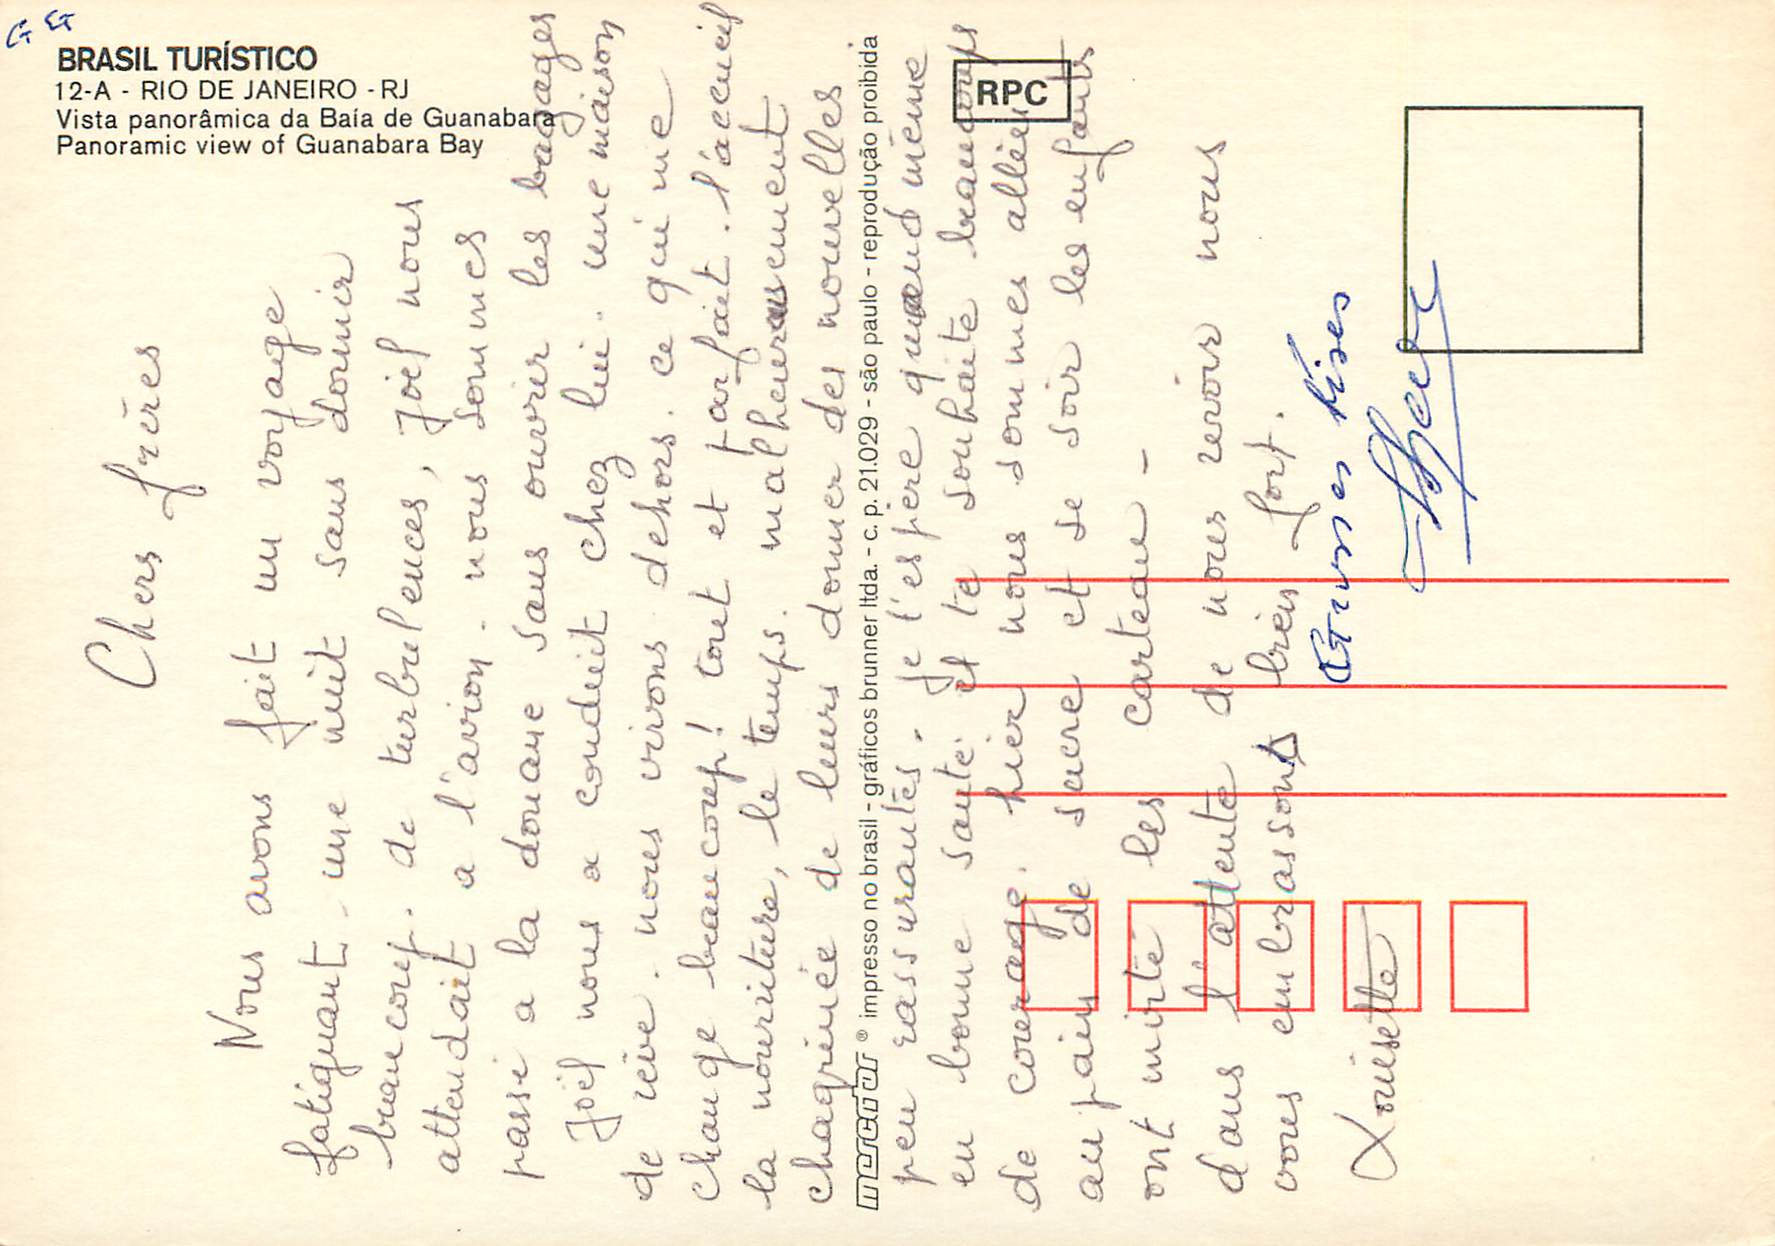 BRASIL TURÍSTICO
12-A - RIO DE JANEIRO - RJ
Vista panorâmica da Baía de Guanabara
Panoramic view of Guanabara Bay
Chers frères
Nous avons fait un voyage
fatiguant - une nuit sans dormir
beaucoup. de turbulences, Joël nous
attendait a l'avion - nous sommes
passé a la douane sans ouvrir les bagages
Joël nous a conduit chez lui. une maison
de rêve - nous vivons dehors. ce qui me
change beaucoup! tout et parfait. l'accueil
la nourriture, le temps. malheureusement
chagrinée de leurs donner des nouvelles
mercator ® impresso no brasil - gráficos brunner ltda. - c. p. 21.029 - são paulo - reprodução proibida
peu rassurantes. Je t'espère quand même
en bonne santé et te souhaite beaucoup
RPC
de courage. hier nous sommes allée
au pain de sucre et se soir les enfants
ont invité les carteau -
dans l'attente de nous revoir nous
vous embrassons bien fort.
Louisette
Grosses bises